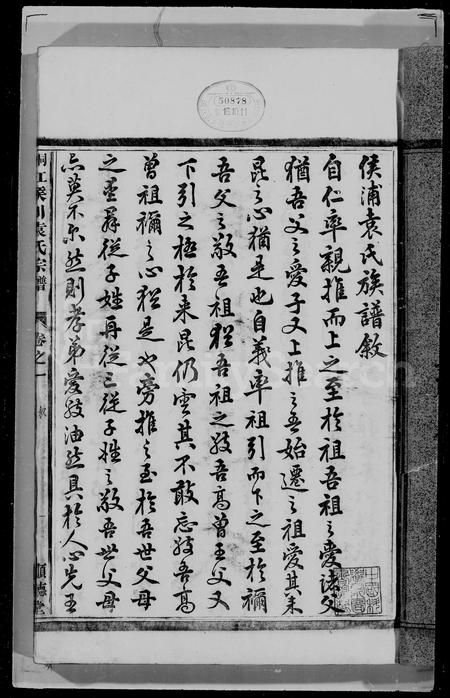 50878
侯浦袁氏族譜敘
自仁率親推而上之至於祖吾祖之愛諸父
猶吾父之愛子又上推之吾始遷之祖愛其來
昆之心猶是也自義率祖引而下之至於禰
吾父之敬吾祖猶吾祖之敬吾高曾王父又
下引之極於來昆仍雲其不敢忘敬吾高
曾祖禰之心猶是也旁推之至於吾世父母
之坐辭從子姓再從三從子姓之敬吾世父母
亦莫不然然則孝弟愛敬油然具於人心先王
桐江侯川袁氏宗譜 卷之一 敘 順德堂